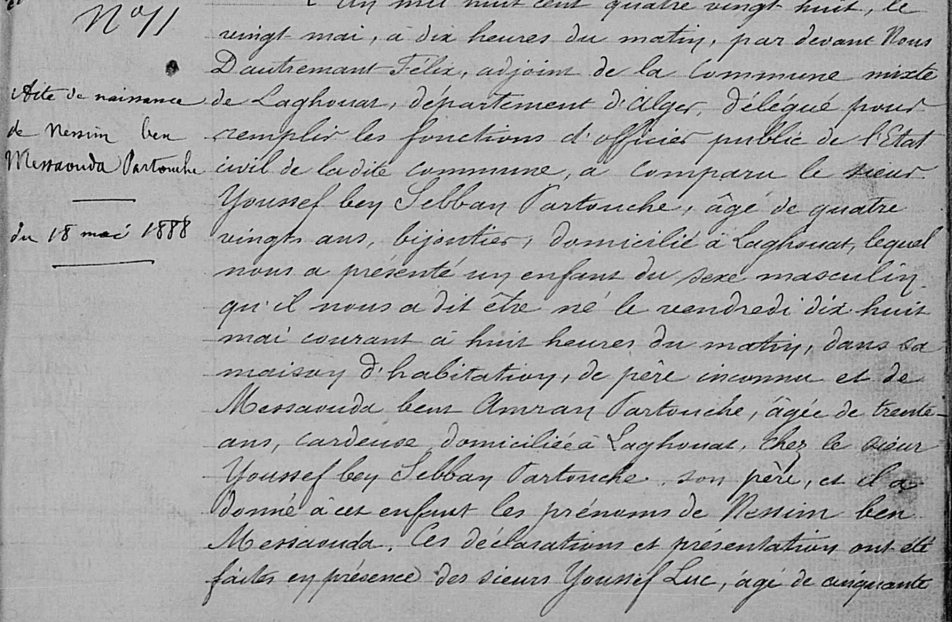 N° 11
Acte de naissance
de Nessim ben
Messaouda Partouche
du 18 mai 1888
L'An mil huit cent quatre vingt huit, le
vingt mai, à dix heures du matin, par devant Nous
Dautremant Félix, adjoint de la Commune mixte
de Laghouat, département d'Alger, délégué pour
remplir les fonctions d'officier public de l'Etat
civil de ladite commune, a comparu le sieur
Youssef ben Sebban Partouche, âgé de quatre
vingts ans, bijoutier, domicilié à Laghouat, lequel
nous a présenté un enfant du sexe masculin
qu'il nous a dit être né le vendredi dix huit
mai courant à huit heures du matin, dans sa
maison d'habitation, de père inconnu et de
Messaouda bent Amran Partouche, âgée de trente
ans, cardeuse domiciliée à Laghouat, chez le sieur
Youssef ben Sebban Partouche son père, et il a
donné à cet enfant les prénoms de Nessim ben
Messaouda. Ces déclarations et présentation ont été
faites en présence des sieurs Youssef Luc, âgé de cinquante